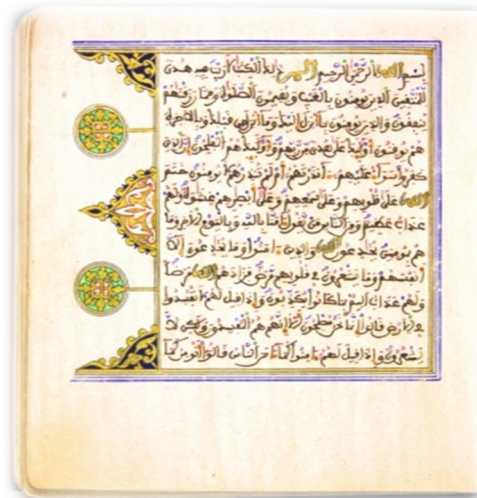 بسم الله الرحمن الرحيم الم ذلك الكتب لا ريب فيه هدى
للمتقين الذين يومنون بالغيب ويقيمون الصلوة ومما رزقنهم
ينفقون والذين يومنون بما أنزل إليك وما أنزل من قبلك وبالاخرة
هم يوقنون أولئك على هدى من ربهم وأولئك هم المفلحون إن الذين
كفروا سواء عليهم ءانذرتهم أم لم تنذرهم لا يومنون ختم
الله على قلوبهم وعلى سمعهم وعلى أبصرهم غشوة ولهم
عذاب عظيم ومن الناس من يقول ءامنا بالله وباليوم الاخر وما
هم بمومنين يخدعون الله والذين ءامنوا وما يخدعون إلا
أنفسهم وما يشعرون في قلوبهم مرض فزادهم الله مرضا
ولهم عذاب أليم بما كانوا يكذبون وإذا قيل لهم لا تفسدوا
في الارض قالوا إنما نحن مصلحون ألا إنهم هم المفسدون ولكن لا
يشعرون وإذا قيل لهم ءامنوا كما ءامن الناس قالوا أنومن كما